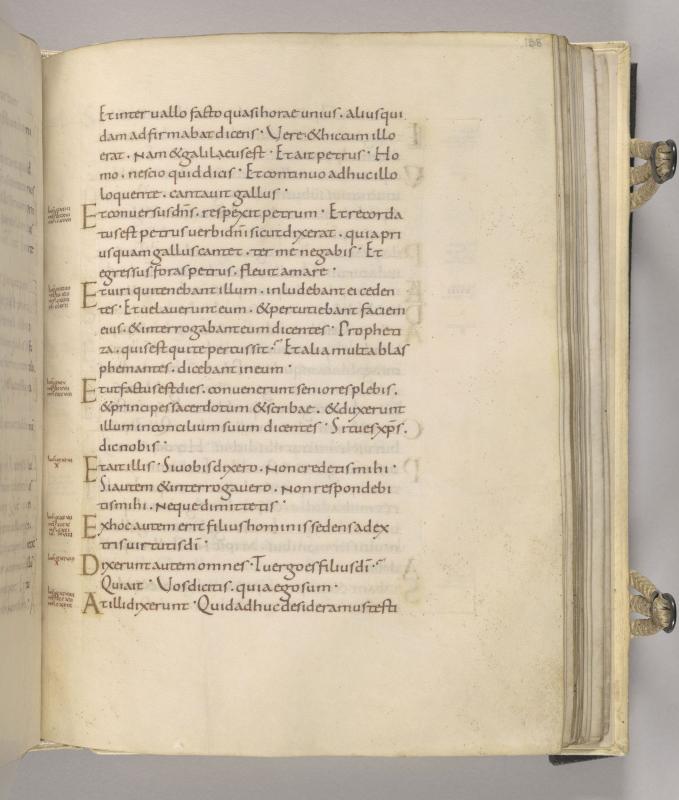 158
Et intervallo facto quasi horae unius · alius qui
dam adfirmabat dicens · Vere & hic cum illo
erat · Nam & galilaeus est · Et ait petrus · Ho
mo · nescio quid dicis · Et continuo adhuc illo
loquente · cantavit gallus ·
Et conversus dñs · respexit petrum · Et recorda
tus est petrus verbi dñi sicut dixerat · quia pri
us quam gallus cantet · ter me negabis · Et
egressus foras petrus · flevit amare ·
Et viri qui tenebant illum · inludebant ei ceden
tes · Et velaverunt eum · & percutiebant faciem
eius · & interrogabant eum dicentes · Propheti
za · quis est qui te percussit · Et alia multa blas
phemantes · dicebant in eum ·
Et ut factus est dies · convenerunt seniores plebis ·
& principes sacerdotum & scribae · & duxerunt
illum in concilium suum dicentes · Si tu es xps ·
dic nobis ·
Et ait illis · Si vobis dixero · Non credetis mihi ·
Si autem & interrogavero · Non respondebi
tis mihi · Neque dimittetis ·
Ex hoc autem erit filius hominis sedens a dex
tris virtutis dī ·
Dixerunt autem omnes · Tu ergo es filius dī ·
Qui ait · Vos dicitis · quia ego sum ·
At illi dixerunt · Quid adhuc desideramus testi